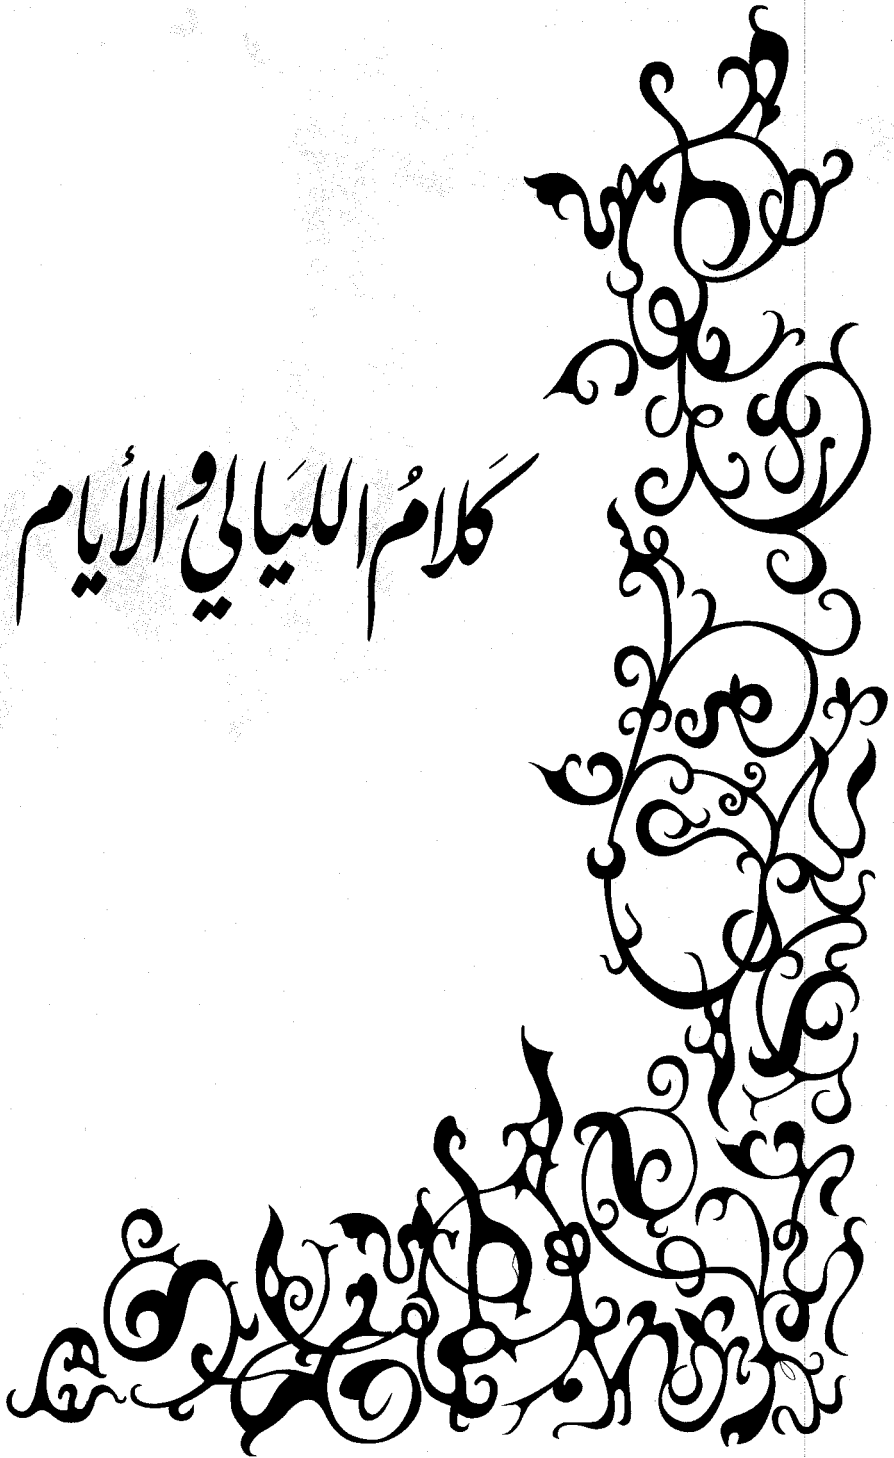 كَلَامُ اللليَالي و الأيام